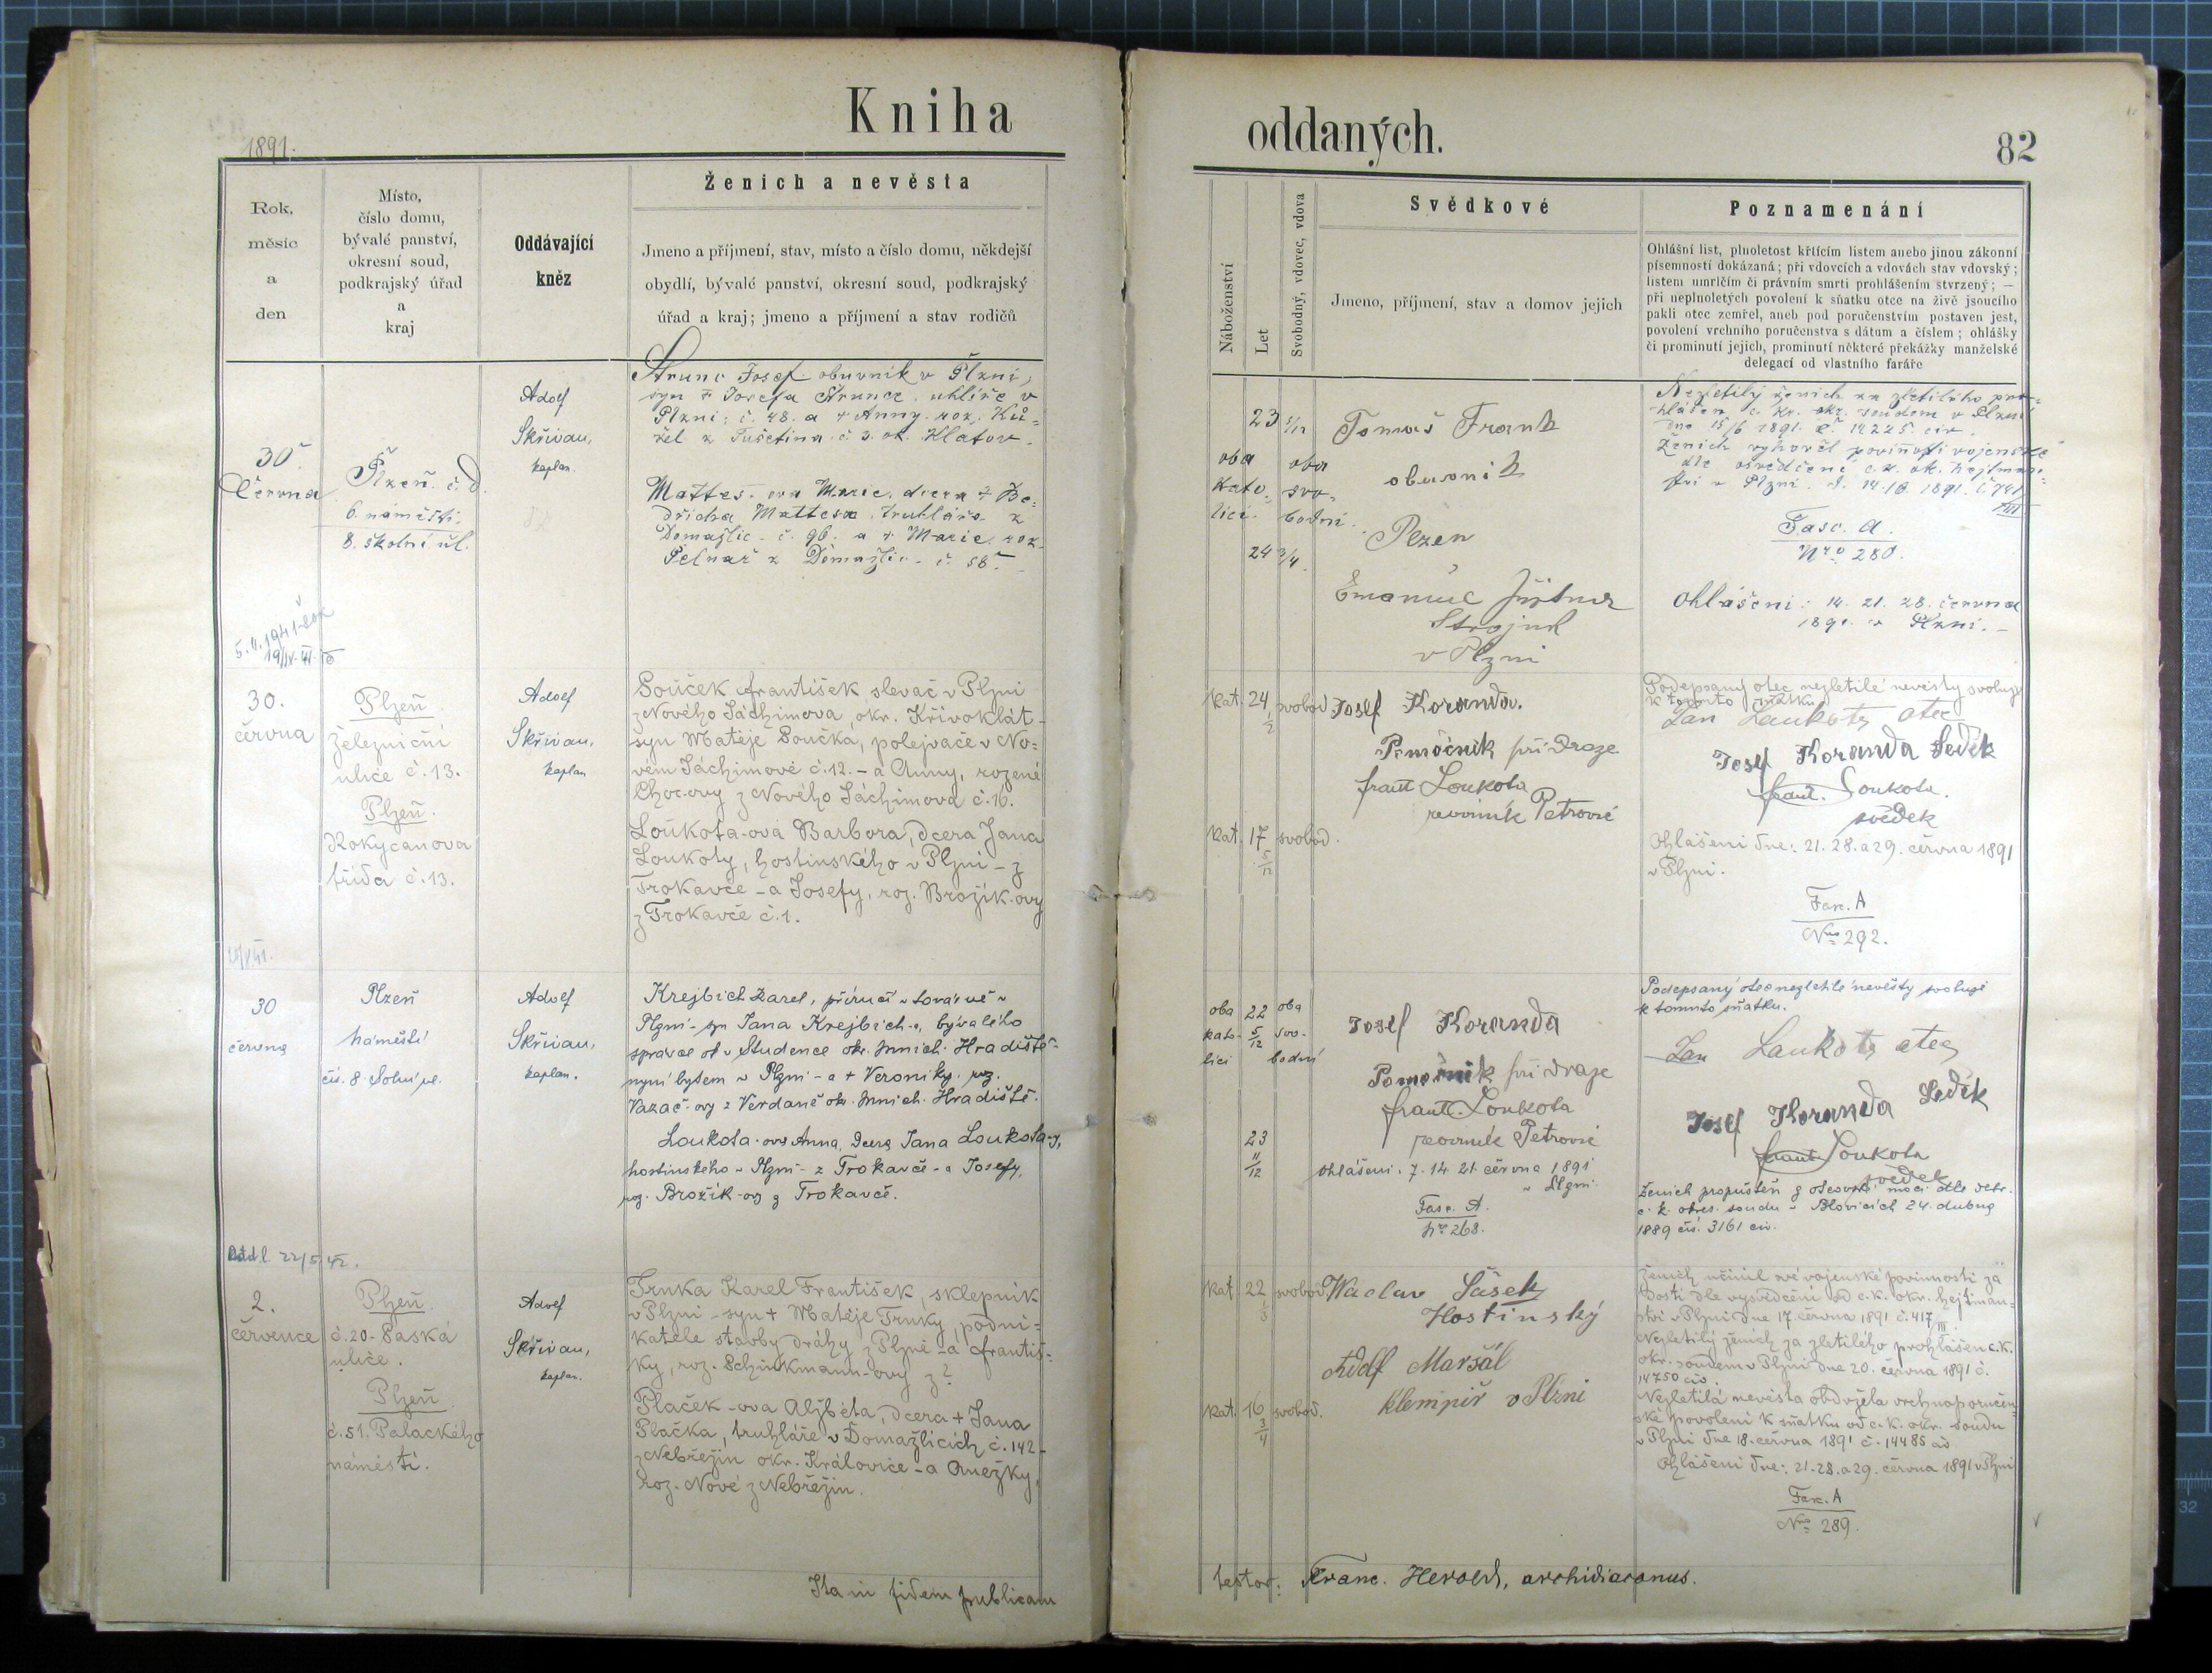 Kniha
1891.
Rok,
měsíc
a
den
Místo,
číslo domu,
bývalé panství,
okresní soud,
podkrajský úřad
a
kraj
Oddávající
kněz
Ženich a nevěsta
Jmeno a příjmení, stav, místo a číslo domu, někdejší
obydlí, bývalé panství, okresní soud, podkrajský
úřad a kraj; jmeno a příjmení a stav rodičů
30
června
Plzeň
6. náměstí,
8. školní ul.
Adolf
Skřivan,
kaplan.
Strunc Josef obuvník v Plzni,
syn Josefa Strunce, uhlíře v
Plzni č. 48. a Anny roz.
z Tušetina č. 3. ok. Klatov.
Mattes-ova Marie, dcera Be-
dřicha Mattesa, truhláře z
Domažlic č. 96. a Marie roz.
Pelnař z Domažlic č. 58.
30.
června
Plzeň
Železniční
ulice č. 13.
Plzeň.
Rokycanova
třída č. 13.
Adolf
Skřivan,
kaplan
Souček František slevač v Plzni
z Nového Jáchimova, okr. Křivoklát-
syn Matěje Součka, polejvače v No=
vém Jáchimově č. 12. - a Anny, rozené
z Nového Jáchimova č. 16.
Loukota-ova Barbora, dcera Jana
Loukoty, hostinského v Plzni - z
Trokavče - a Josefy, roz. Brožík-ovy
z Trokavče č. 1.
30
června
Plzeň
náměstí
čís. 8 Solní ul.
Adolf
Skřivan,
kaplan.
Krejbich Karel, příručí v továrně v
Plzni - syn Jana Krejbich-a, bývalého
správce ob. v Studence okr. Mnich. Hradiště-
nyní bytem v Plzni - a + Veroniky roz.
Vazač-ovy z okr. Mnich. Hradiště.
Loukota-ova Anna, dcera Jana Loukota-y,
hostinského v Plzni - z Trokavče - a Josefy,
roz. Brožík-ovy z Trokavče.
2.
července
Plzeň
č. 20 - Saská
ulice.
Plzeň
č. 51. Palackého
náměstí.
Adolf
Skřivan,
kaplan.
Trnka Karel František, sklepník
v Plzni - syn + Matěje Trnky, podni=
katele stavby dráhy z Plzně - a Františ-
ky, roz. Schinkmann-ovy z ?
Plaček-ova Alžběta, dcera + Jana
Plačka, truhláře v Domažlicích č. 142 -
z Nebřežin okr. Královice - a Anežky,
roz. Nové z Nebřežin.
Ita in fidem publicam
oddaných.
82
Náboženství
Let
Svobodný, vdovec, vdova
Svědkové
Jmeno, příjmení, stav a domov jejich
Poznamenání
Ohlášní list, plnoletost křticím listem anebo jinou zákonní
písemností dokázaná; při vdovcích a vdovách stav vdovský;
listem umrlčím či právním smrti prohlášením stvrzený; —
při neplnoletých povolení k sňatku otce na živě jsoucího
pakli otec zemřel, aneb pod poručenstvím postaven jest,
povolení vrchního poručenstva s dátum a číslem; ohlášky
či prominutí jejich, prominutí některé překážky manželské
delegací od vlastního faráře
oba
kato-
lici
23
24 3/4
oba
svo-
bodni
Tomáš Frank
obuvník
Plzeň
Emanuel
Strojník
v Plzni
Nezletilý ženich za zletilého pro-
hlášen c. kr. okr. soudem v Plzni
dne 15/6 1891. č. 14225 civ.
Ženich vyhověl povinosti vojenské
dle osvědčení c. k. ok. hejtman-
ství v Plzni
Fasc. A.
Nro 280.
Ohlášeni: 14. 21. 28. června
1891. v Plzni. —
kat. 24 1/2 svobod.
Josef Koranda.
Pomocník při Draze
frant Loukota
rovník Petrovic
kat. 17 5/12 svobod.
Podepsaný otec nezletilé nevěsty svoluje
k tomuto sňatku
Jan Laukota otec
Josef Koranda Sedek
frant. Loukota.
svědek
Ohlášeni dne: 21. 28. a 29. června 1891
v Plzni.
Fasc. A
Nro 292.
oba
kato-
lici
22
5/12
oba
svo-
bodni
23
11/12
Josef Koranda
Pomocník při draze
frant. Loukota
rovník Petrovic
Ohlášeni. 7. 14. 21. června 1891
v Plzni.
Fasc. A.
Nro 268.
Podepsaný otec nezletilé nevěsty svoluje
k tomuto sňatku.
Jan Laukota otec
Josef Koranda Sedek
frant Loukota
svědek
Ženich propuštěn z otcovské moci dle dekr.
c. k. okres. soudu v Blovicích 24. dubna
1889 čís. 3161 civ.
kat. 22 svobod.
Wáclav Šašek
Hostinský
Adolf Maršál
klempíř v Plzni
kat. 16 3/4 svobod.
Ženich učinil své vojenské povinnosti za
dosti dle vysvědčení od c. k. okr. hejtman-
ství v Plzni dne 17. června 1891 č. 417/III.
Nezletilý ženich za zletilého prohlášen c. k.
okr. soudem v Plzni dne 20. června 1891 č.
14750 civ.
Nezletilá nevěsta obdržela vrchnoporučen-
ské povolení k sňatku od c. k. okr. soudu
v Plzni dne 18. června 1891 č. 14485 civ
Ohlášeni dne: 21. 28. a 29. června 1891 v Plzni
Fasc. A
Nro 289.
testor: Franc. Herold, archidiaconus.